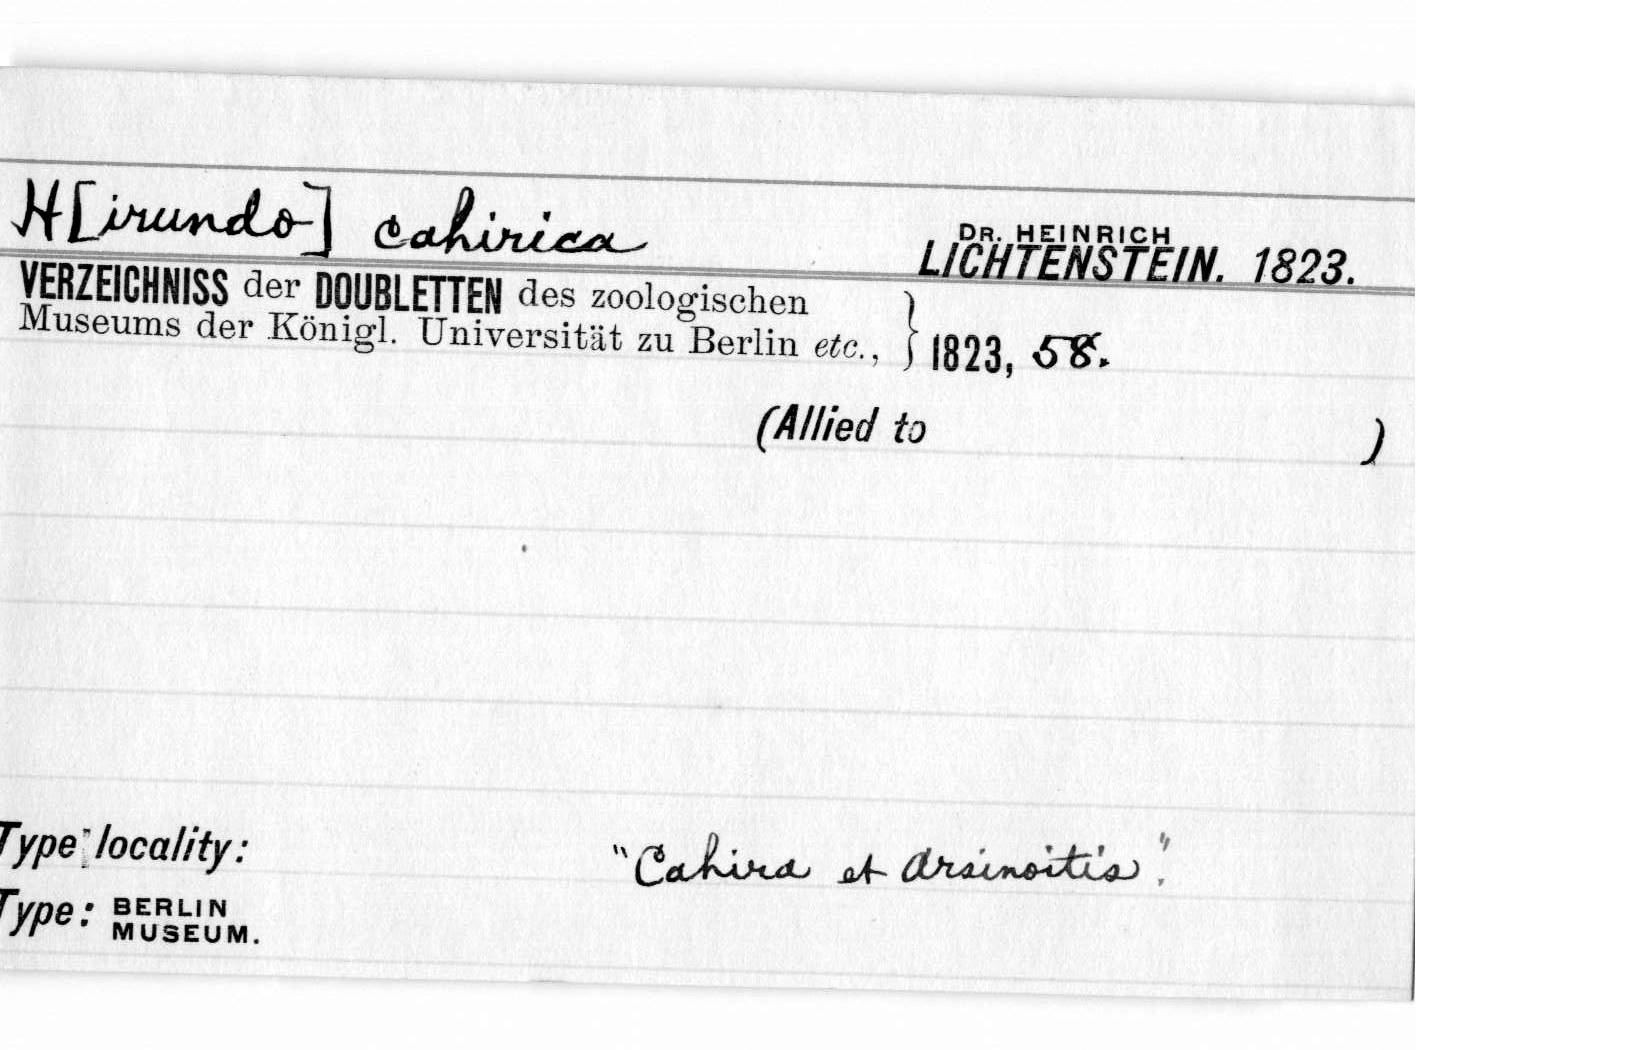 H[irundo] cahirica
DR. HEINRICH
LICHTENSTEIN. 1823.
VERZEICHNISS der DOUBLETTEN des zoologischen
Museums der Königl. Universität zu Berlin etc., } 1823, 58.
(Allied to )
Type locality: "Cahira et Arsinoitis".
Type: BERLIN
MUSEUM.